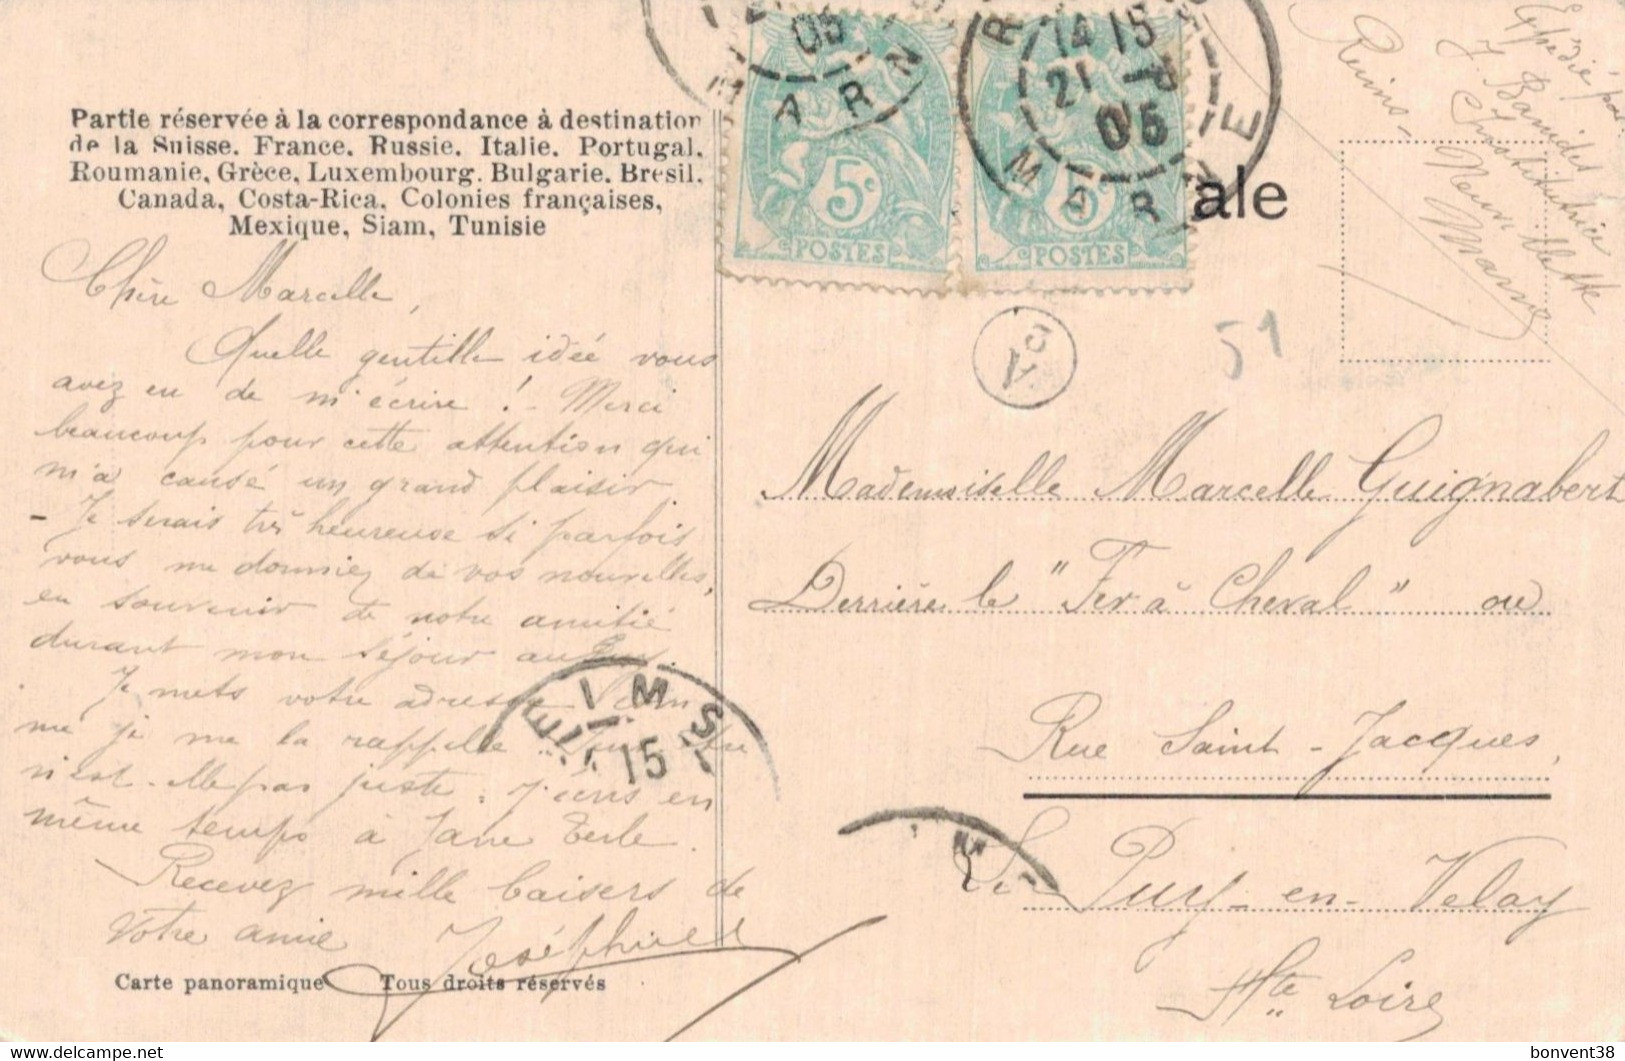 Partie réservée à la correspondance à destination
de la Suisse. France. Russie. Italie. Portugal.
Roumanie, Grèce, Luxembourg. Bulgarie. Bresil.
Canada, Costa-Rica, Colonies françaises,
Mexique, Siam, Tunisie
Chère Marcelle,
Quelle gentille idée vous
avez eu de m'écrire ! - Merci
beaucoup pour cette attention qui
m'a causé un grand plaisir
- Je serais très heureuse si parfois
vous me donniez de vos nouvelles,
en souvenir de notre amitié
durant mon séjour au Puy.
Je mets votre adresse
me je me la rappelle
n'est-elle pas juste. J'écris en
même temps à Jane
Recevez mille baisers de
Votre amie Joséphine
Carte panoramique Tous droits réservés
05
MARN
5c
POSTES
14 15
21
05
MARNE
5c
POSTES
ale
51
Expédié par
J.
Institutrice
Neuvillette
Marne
Reims -
Mademoiselle Marcelle Guignabert
Derrière le "Fer à Cheval" ou
Rue Saint-Jacques,
Le Puy-en-Velay
Hte Loire
REIMS
15
bonvent38